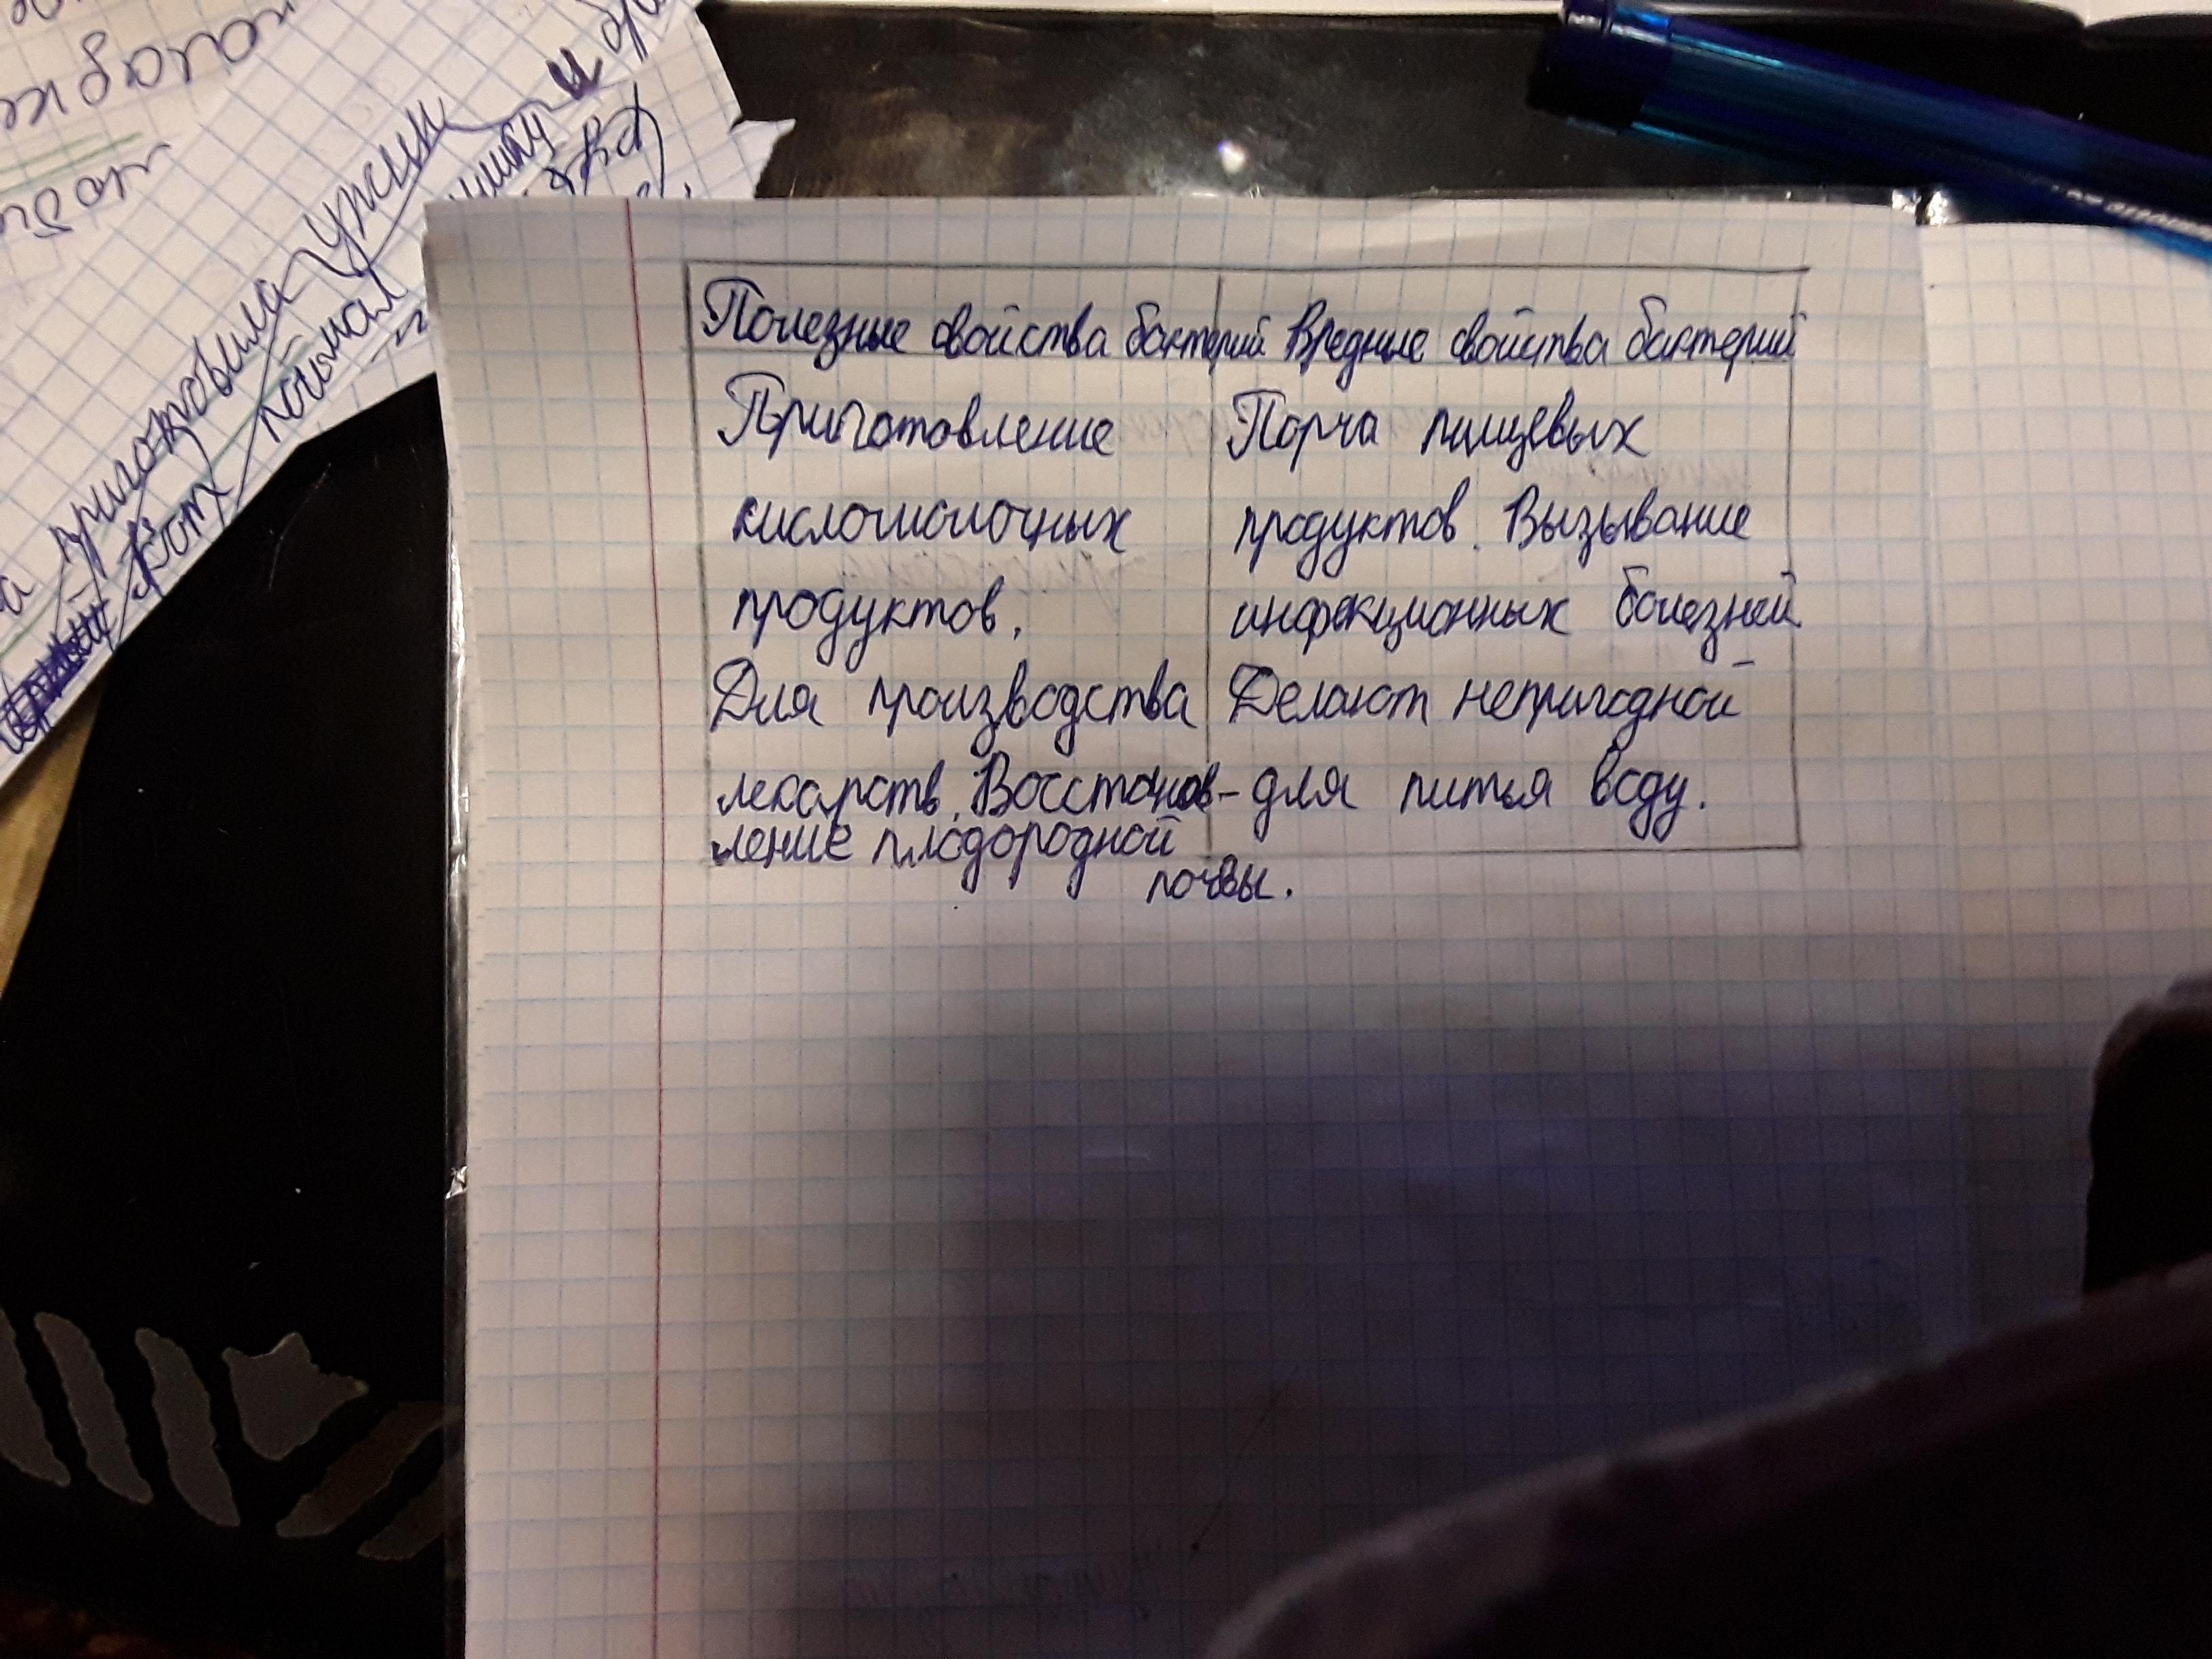 Полезные свойства бактерий
Приготовление
кисломолочных
продуктов.
Для производства
лекарств. Восстанов-
ление плодородной
почвы.
Вредные свойства бактерий
Порча пищевых
продуктов. Вызывание
инфекционных болезней
Делают непригодной
для питья воду.
приготовила ужин
кот поймал
и